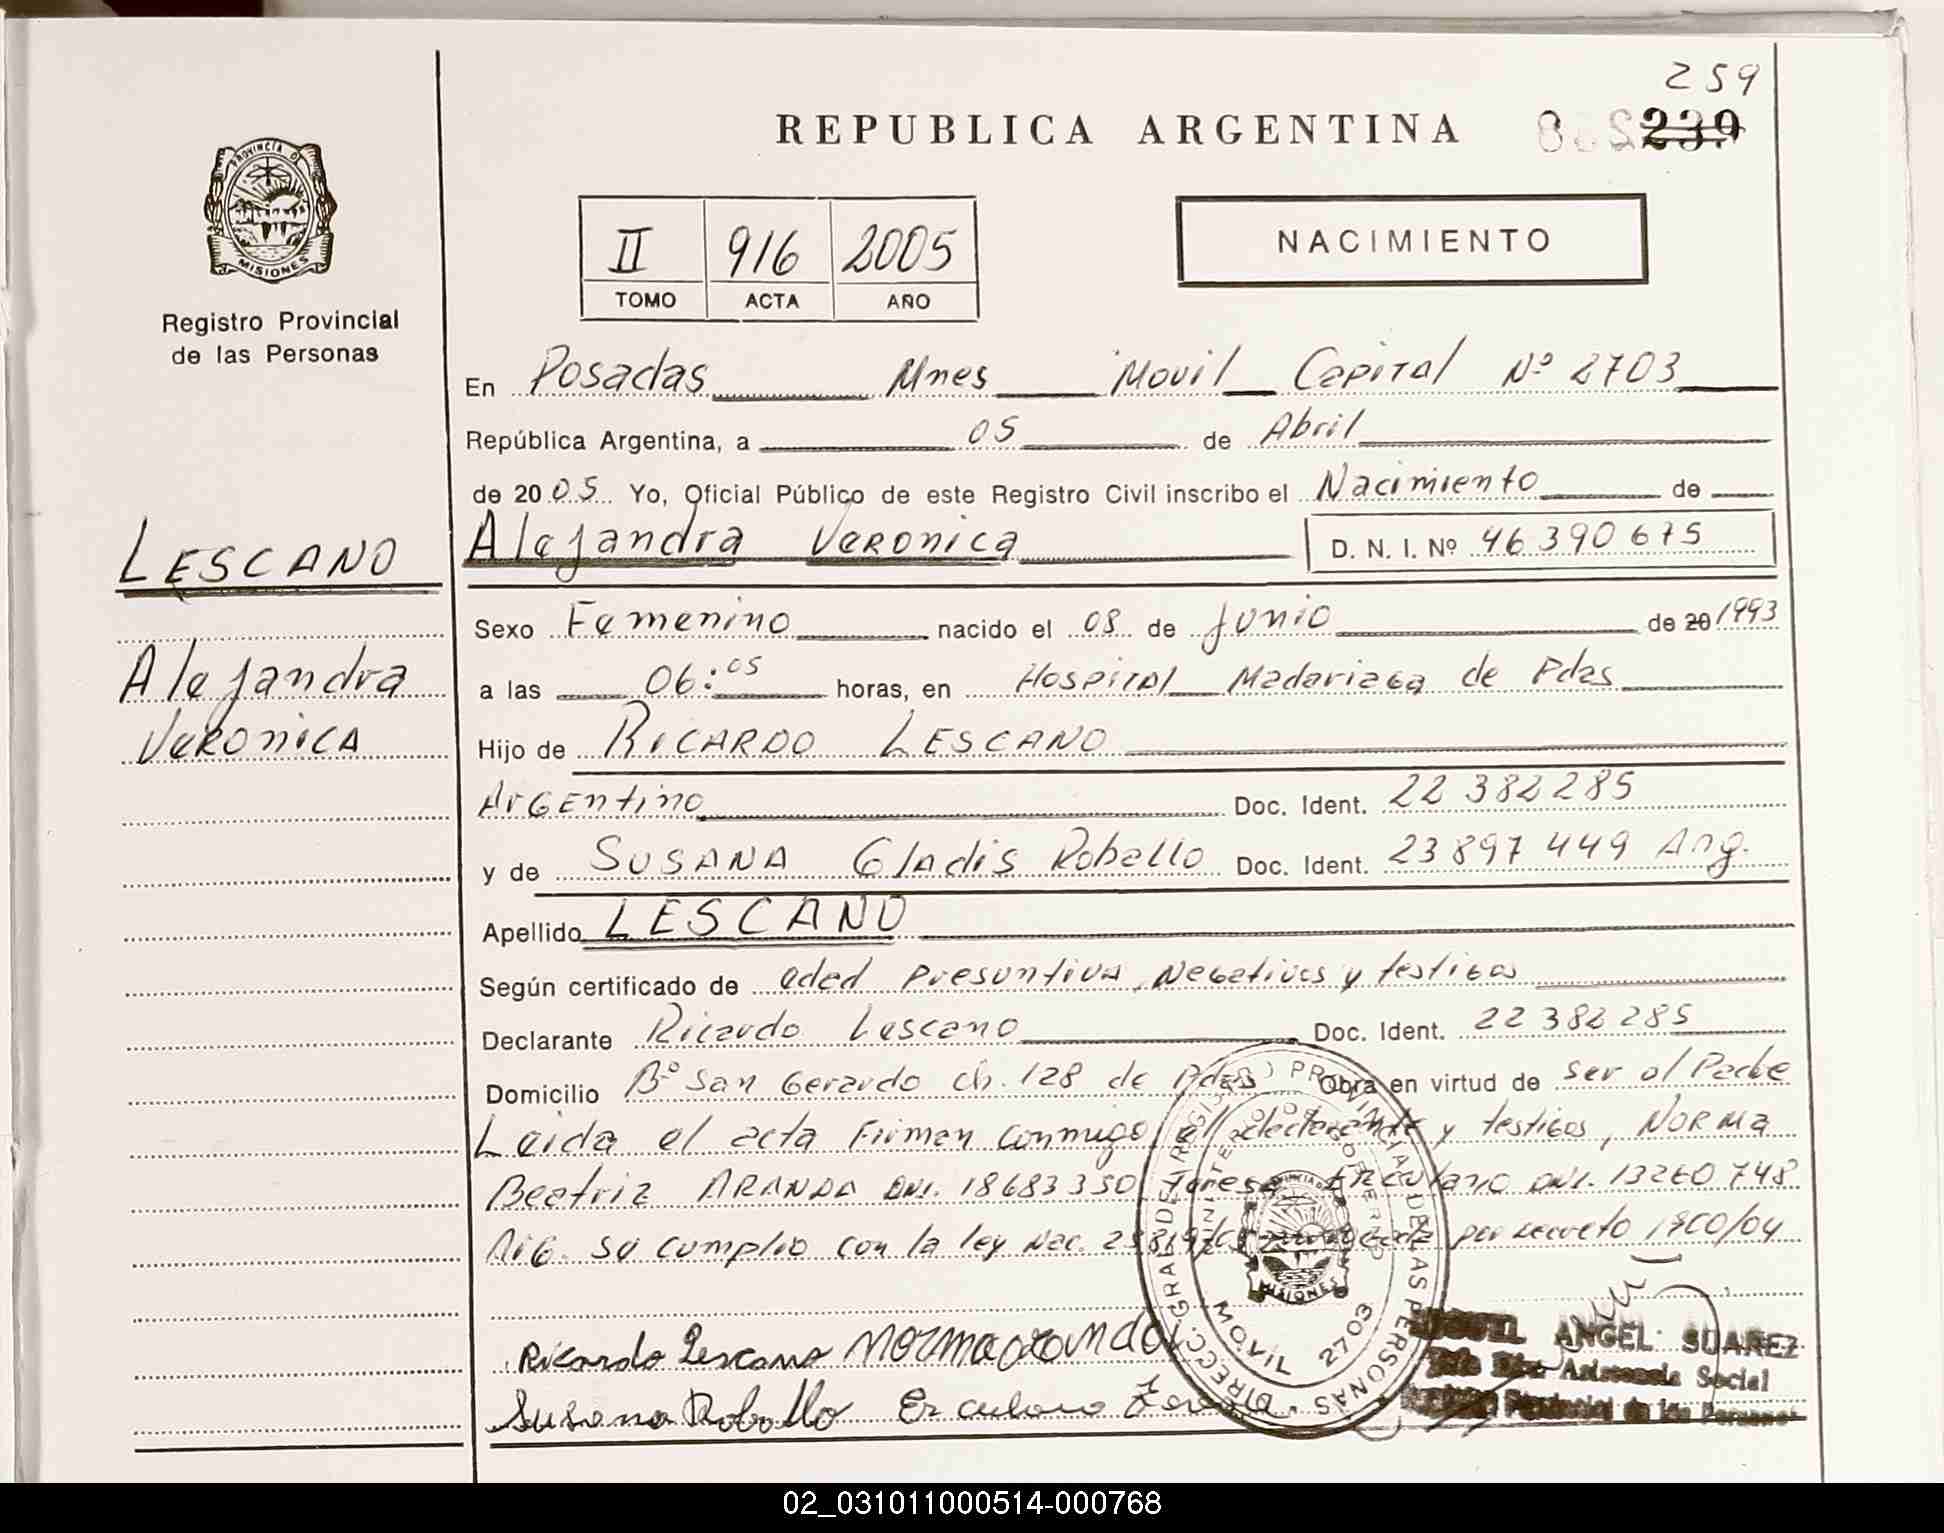 259
REPUBLICA ARGENTINA
239
PROVINCIA DE
MISIONES
Registro Provincial
de las Personas
II 916 2005
TOMO ACTA AÑO
NACIMIENTO
En Posadas Mnes Movil Capital Nº 2703
República Argentina, a 05 de Abril
de 2005 Yo, Oficial Público de este Registro Civil inscribo el Nacimiento de
LESCANO
Alejandra Veronica
D. N. I. Nº 46 390 675
Alejandra
Veronica
Sexo Femenino nacido el 08 de Junio de 20 1993
a las 06:05 horas, en Hospital Madariaga de Pdas
Hijo de RICARDO LESCANO
Argentino Doc. Ident. 22 382 285
y de SUSANA Gladis Robello Doc. Ident. 23 897 449 Arg.
Apellido LESCANO
Según certificado de edad presuntiva, Negativos y testigos
Declarante Ricardo Lescano Doc. Ident. 22 382 285
Domicilio Bº San Gerardo ch. 128 de Pdas Obra en virtud de ser el Padre
Leida el acta Firman conmigo el declarante y testigos, NORMA
Beatriz ARANDA DNI. 18683330 Teresa Erculano DNI. 13260748
se cumplio con la ley Nac. por Decreto 1900/04
Ricardo Lescano Norma aranda
Susana Robello Erculano
DIRECC. GRAL DEL REGISTRO PROVINCIAL DE LAS PERSONAS
MINISTERIO DE GOBIERNO
PROVINCIA DE
MISIONES
MOVIL 2703
ANGEL SUAREZ
Asistencia Social
Provincial de las Personas
02_031011000514-000768